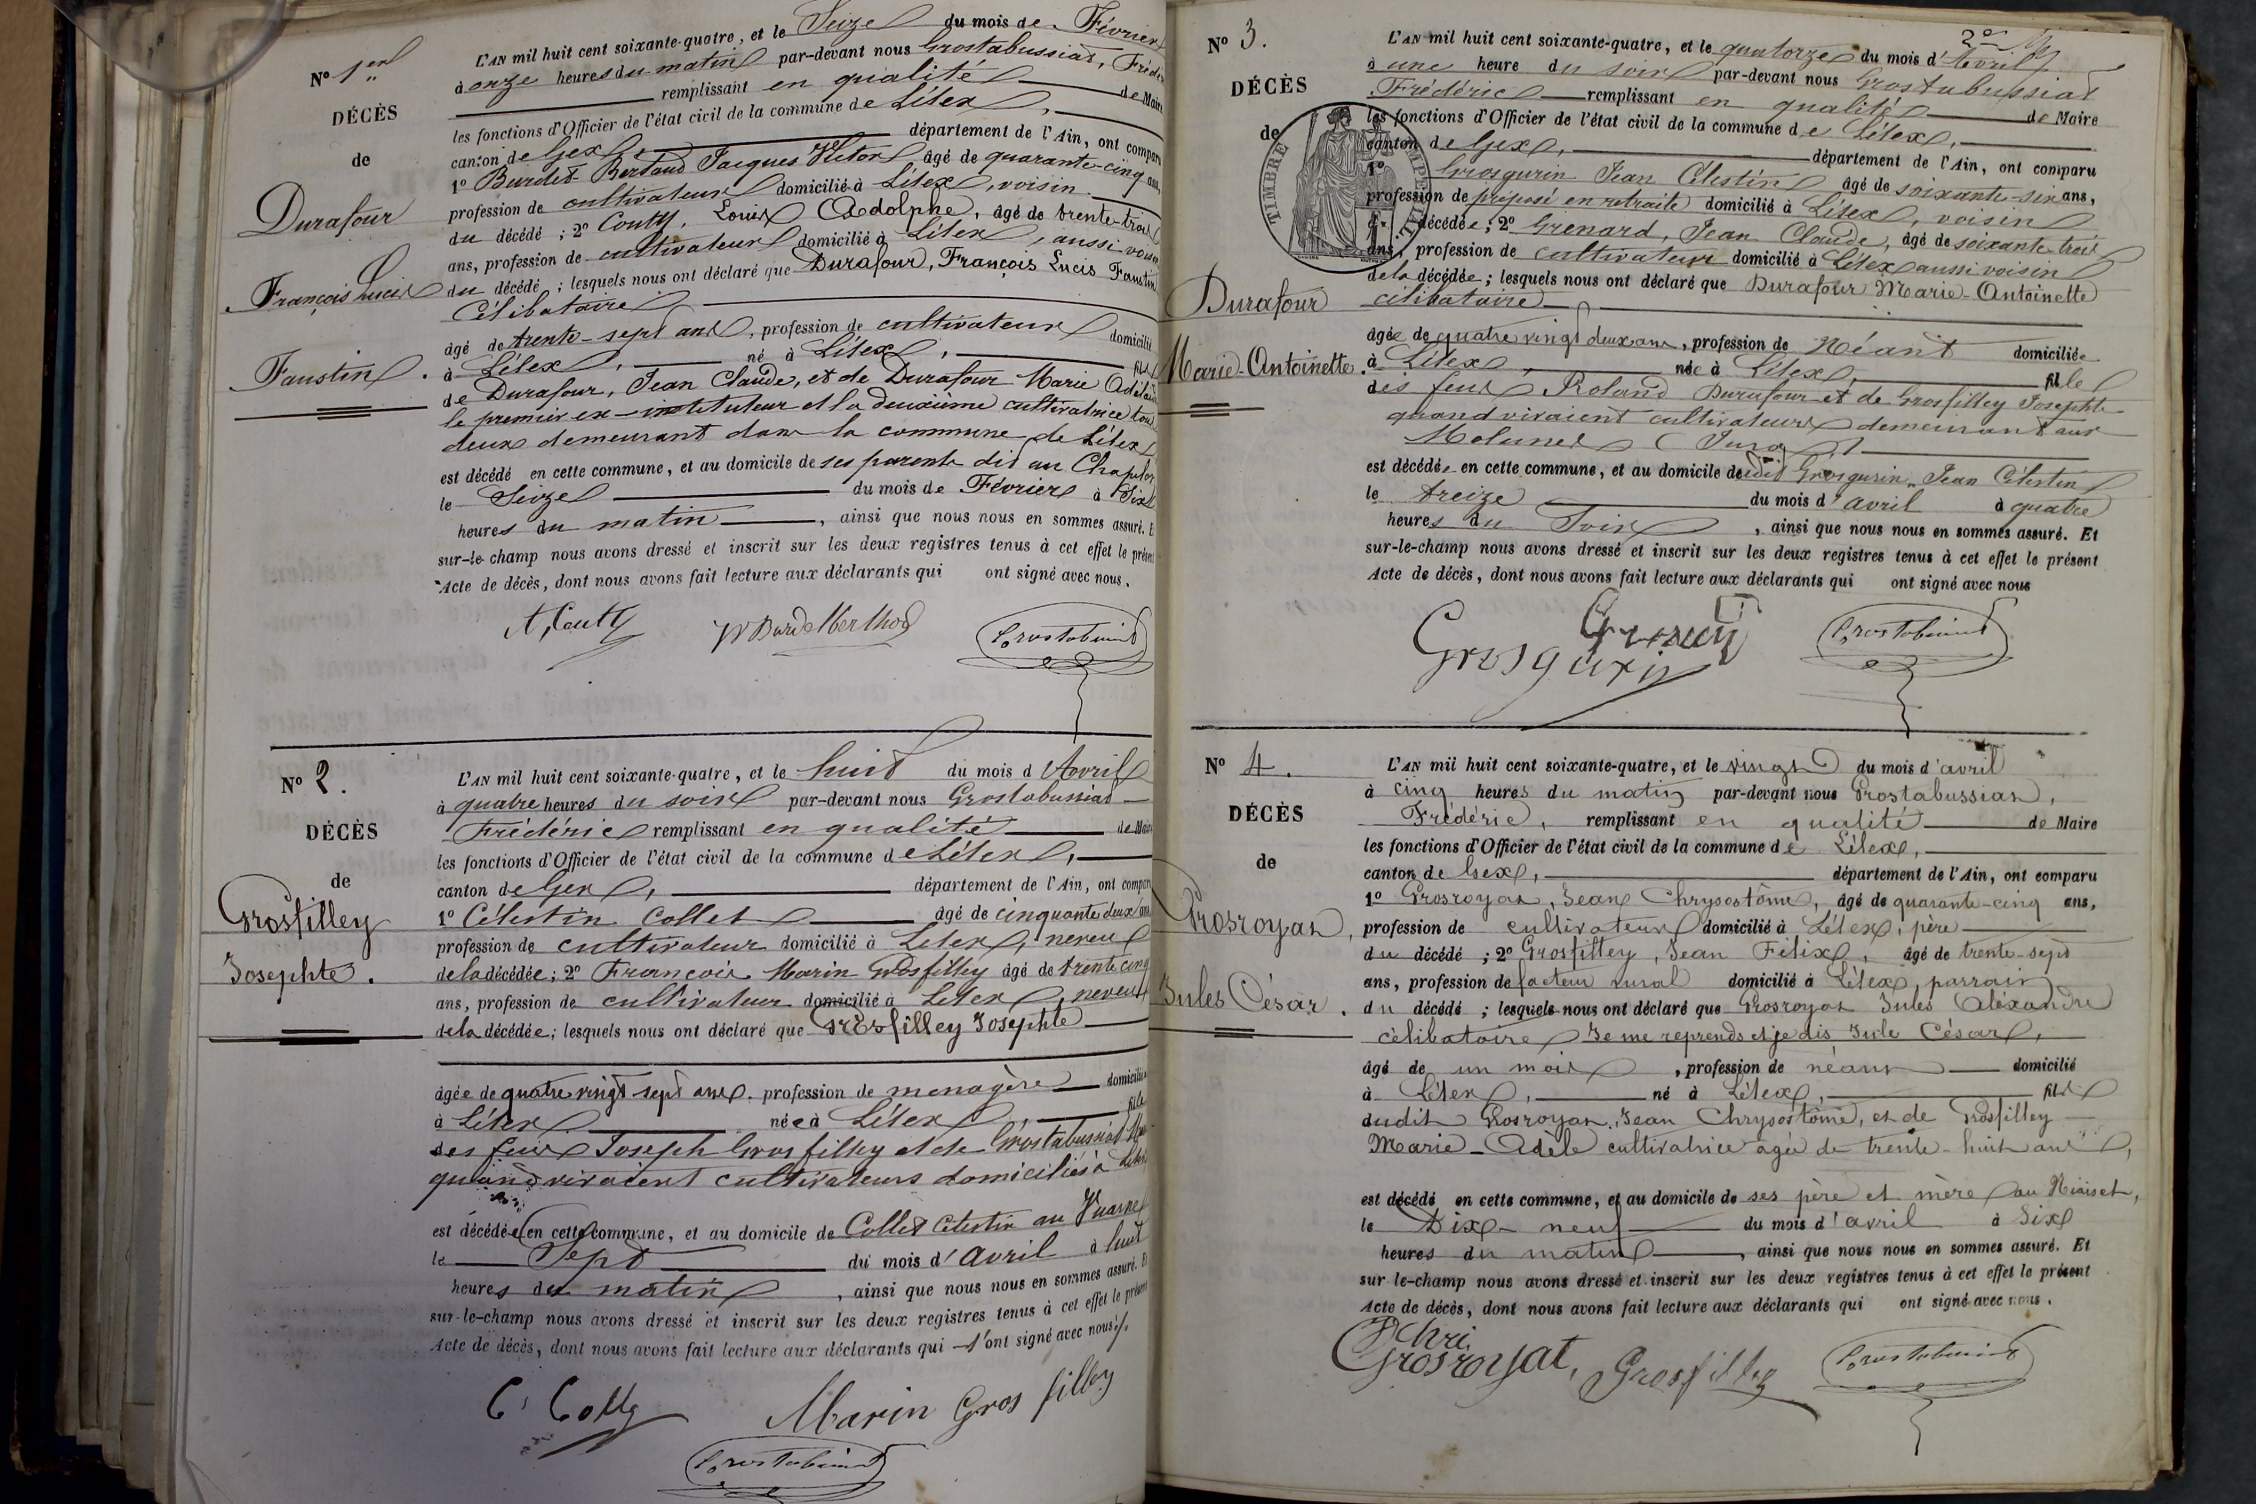 No 1er
DÉCÈS
de
Durafour
François Lucis
Faustin.
L'AN mil huit cent soixante-quatre, et le Seize du mois de Février
à onze heures du matin par-devant nous Grostabussiat, Frédé
remplissant en qualité de Maire
les fonctions d'Officier de l'état civil de la commune de Lélex,
canton de Gex, département de l'Ain, ont comparu
1o Burdet Bertaud Jacques Victor âgé de quarante-cinq ans,
profession de cultivateur domicilié à Lélex, voisin
du décédé ; 2o Coutty, Louis Adolphe, âgé de trente-trois
ans, profession de cultivateur domicilié à Lélex, aussi voisin
du décédé ; lesquels nous ont déclaré que Durafour, François Lucis Faustin
Célibataire
âgé de trente-sept ans, profession de cultivateur domicilié
à Lélex, né à Lélex, fils
de Durafour, Jean Claude, et de Durafour Marie Adélaïde
le premier ex-instituteur et la deuxième cultivatrice tous
deux demeurant dans la commune de Lélex
est décédé en cette commune, et au domicile de ses parents dit au
le Seize du mois de Février à Six
heures du matin, ainsi que nous nous en sommes assuré. E
sur-le-champ nous avons dressé et inscrit sur les deux registres tenus à cet effet le présent
Acte de décès, dont nous avons fait lecture aux déclarants qui ont signé avec nous.
Grostabussiat
No 2.
DÉCÈS
de
Grosfilley
Josephte.
L'AN mil huit cent soixante-quatre, et le huit du mois d'Avril
à quatre heures du soir par-devant nous Grostabussiat
Frédéric remplissant en qualité de Maire
les fonctions d'Officier de l'état civil de la commune de Lélex,
canton de Gex, département de l'Ain, ont comparu
1o Célestin Collet âgé de cinquante deux ans
profession de cultivateur domicilié à Lélex, neveu
de la décédée ; 2o François Marin Grosfilley âgé de trente cinq
ans, profession de cultivateur domicilié à Lélex, neveu
de la décédée ; lesquels nous ont déclaré que Grosfilley Josephte
âgée de quatre vingt sept ans. profession de menagère domiciliée
à Lélex née à Lélex, fille
des feux Joseph Grosfilley et de Grostabussiat
quand vivaient cultivateurs domiciliés à Lélex
est décédée en cette commune, et au domicile de Collet Célestin au
le Sept du mois d'avril à huit
heures du matin, ainsi que nous nous en sommes assuré. Et
sur-le-champ nous avons dressé et inscrit sur les deux registres tenus à cet effet le présent
Acte de décès, dont nous avons fait lecture aux déclarants qui l'ont signé avec nous.
Marin Gros filley
Grostabussiat
2e
No 3.
DÉCÈS
de
TIMBRE IMPÉRIAL
Durafour
Marie-Antoinette.
L'AN mil huit cent soixante-quatre, et le quatorze du mois d'Avril
à une heure du soir par-devant nous Grostabussiat
Frédéric remplissant en qualité de Maire
les fonctions d'Officier de l'état civil de la commune de Lélex,
canton de Gex, département de l'Ain, ont comparu
1o Grosgurin Jean Célestin âgé de soixante-six ans,
profession de préposé en retraite domicilié à Lélex, voisin
décédée ; 2o Grenard, Jean Claude, âgé de soixante-trois
ans, profession de cultivateur domicilié à Lélex aussi voisin
de la décédée ; lesquels nous ont déclaré que Durafour Marie-Antoinette
célibataire
âgée de quatre vingt deux ans, profession de Néant domiciliée
à Lélex, née à Lélex, fille
des feux Roland Durafour et de Grosfilley Josephte
quand vivaient cultivateurs demeurant aux
Molunes (Jura)
est décédée en cette commune, et au domicile dudit Grosgurin Jean Célestin
le treize du mois d'avril à quatre
heures du Soir, ainsi que nous nous en sommes assuré. Et
sur-le-champ nous avons dressé et inscrit sur les deux registres tenus à cet effet le présent
Acte de décès, dont nous avons fait lecture aux déclarants qui ont signé avec nous
Grosgurin
Grostabussiat
No 4.
DÉCÈS
de
Grosroyat,
Jules César.
L'AN mil huit cent soixante-quatre, et le vingt du mois d'avril
à cinq heures du matin par-devant nous Grostabussiat,
Frédéric, remplissant en qualité de Maire
les fonctions d'Officier de l'état civil de la commune de Lélex,
canton de Gex, département de l'Ain, ont comparu
1o Grosroyat, Jean Chrysostôme, âgé de quarante-cinq ans,
profession de cultivateur domicilié à Lélex, père
du décédé ; 2o Grosfilley, Jean Félix, âgé de trente-sept
ans, profession de facteur rural domicilié à Lélex, parrain
du décédé ; lesquels nous ont déclaré que Grosroyat Jules Aléxandre
célibataire Je me reprends et je dis Jule César,
âgé de un mois, profession de néant domicilié
à Lélex, né à Lélex, fils
dudit Grosroyat, Jean Chrysostôme, et de Grosfilley
Marie-Adèle cultivatrice agée de trente-huit ans,
est décédé en cette commune, et au domicile de ses père et mère au Niaiset,
le Dix-neuf du mois d'avril à Six
heures du matin, ainsi que nous nous en sommes assuré. Et
sur le-champ nous avons dressé et inscrit sur les deux registres tenus à cet effet le présent
Acte de décès, dont nous avons fait lecture aux déclarants qui ont signé avec nous.
Grosroyat, Grosfilley
Grostabussiat